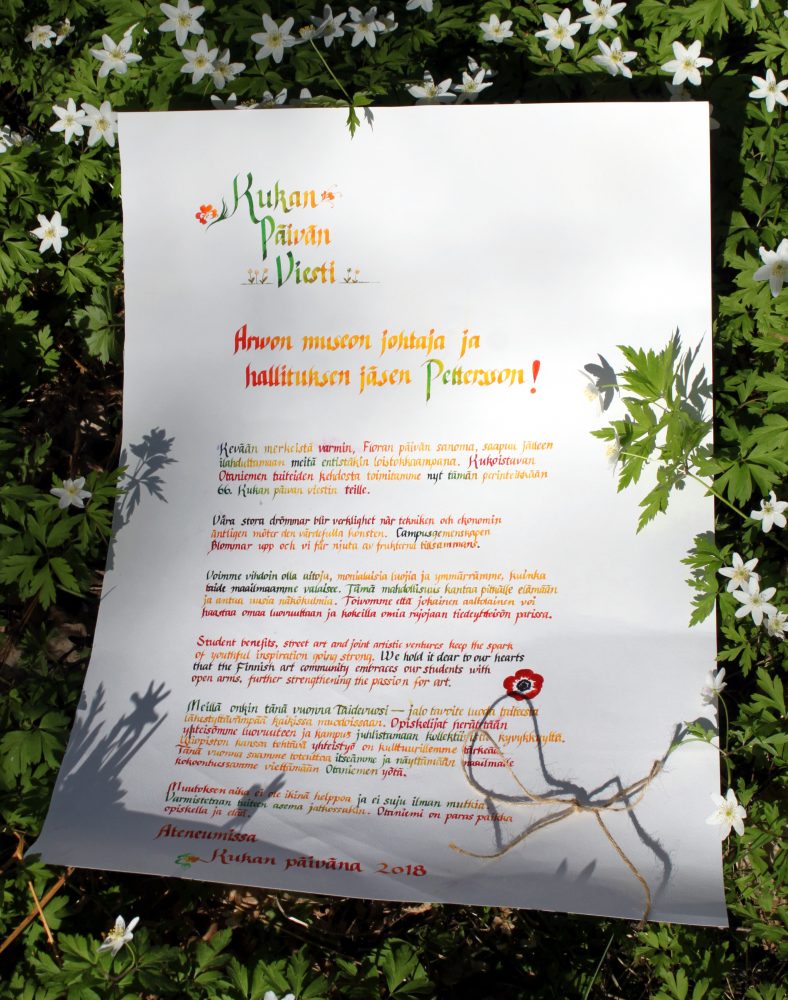 Kukan
Päivän
Viesti
Arwon museon johtaja ja
hallituksen jäsen Pettersson!
Kevään merkeistä varmin, Floran päivän sanoma, saapuu jälleen
ilahduttamaan meitä entistäkin loistokkaampana. Kukoistavan
Otaniemen taiteiden kehdosta toimitamme nyt tämän perinteikkään
66. Kukan päivän viestin teille.
Våra stora drömmar blir verklighet när tekniken och ekonomin
äntligen möter den värdefulla konsten. Campusgemenskapen
blommar upp och vi får njuta av frukterna tillsammans.
Voimme vihdoin olla aitoja, monialaisia luojia ja ymmärrämme, kuinka
taide maailmaamme valaisee. Tämä mahdollisuus kantaa pitkälle elämään
ja antaa uusia näkökulmia. Toivomme että jokainen aaltolainen voi
haastaa omaa luovuuttaan ja kokeilla omia rajojaan tiedeyhteisön parissa.
Student benefits, street art and joint artistic ventures keep the spark
of youthful inspiration going strong. We hold it dear to our hearts
that the Finnish art community embraces our students with
open arms, further strengthening the passion for art.
Meillä onkin tänä vuonna Taidevuosi — jalo tavoite luoda taiteesta
lähestyttävämpää kaikissa muodoissaan. Opiskelijat perehtyään
yhteisömme luovuuteen ja kampus juhlistamaan kollektiivista kyvykkyyttä.
Yliopiston kanssa tehtävä yhteistyö on kulttuurillemme tärkeää.
Tänä vuonna saamme toteuttaa itseämme ja näyttämään maailmalle
kokoontuessamme viettämään Otaniemen yötä.
Muutoksen aika ei ole ikinä helppoa ja ei suju ilman mutkia
Varmistetaan taiteen asema jatkossakin. Otaniemi on paras paikka
opiskella ja elää.
Ateneumissa
Kukan päivänä 2018